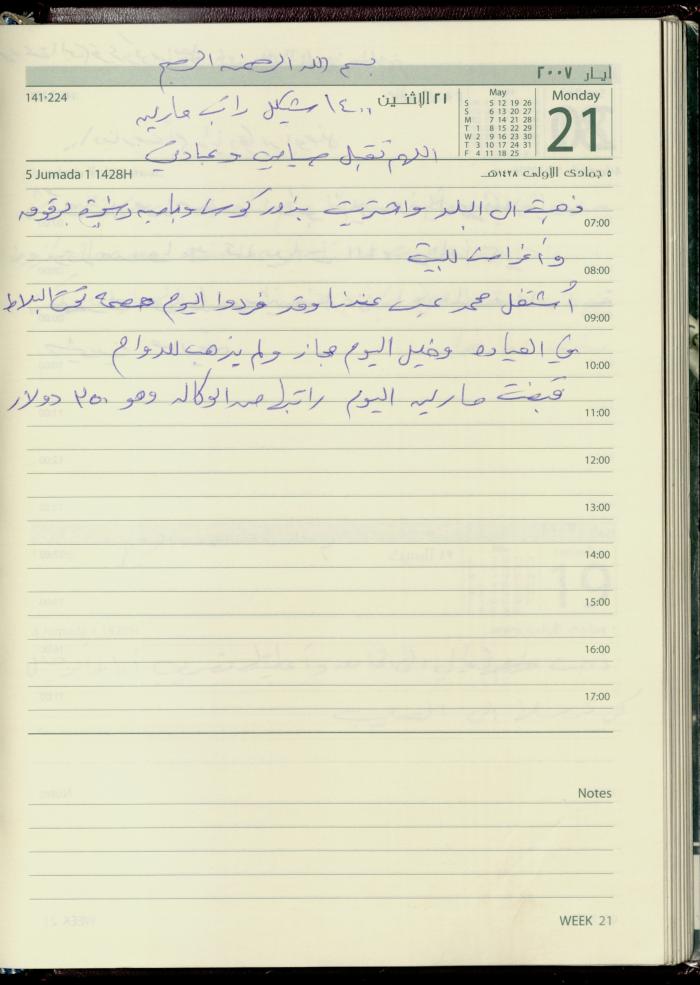 بسم الله الرحمن الرحيم
أيار ٢٠٠٧
141-224
٢١ الإثنين
May
S 5 12 19 26
S 6 13 20 27
M 7 14 21 28
T 1 8 15 22 29
W 2 9 16 23 30
T 3 10 17 24 31
F 4 11 18 25
Monday
21
١٤٠٠ شيكل راتب مارلين
اللهم تقبل صيامي وعبادتي
5 Jumada 1 1428H
٥ جمادى الأولى ١٤٢٨هـ
ذهبت الى البلد واشتريت بذور كوسا وباميه
07:00
وأغراض للبيت
08:00
أشتغل محمد عندنا وقد فردوا اليوم تحت البلاط
09:00
في العياده وخليل اليوم مجاز ولم يذهب للدوام
10:00
قبضت مارلين اليوم راتبها من الوكاله وهو ٣٥٠ دولار
11:00
12:00
13:00
14:00
15:00
16:00
17:00
Notes
WEEK 21